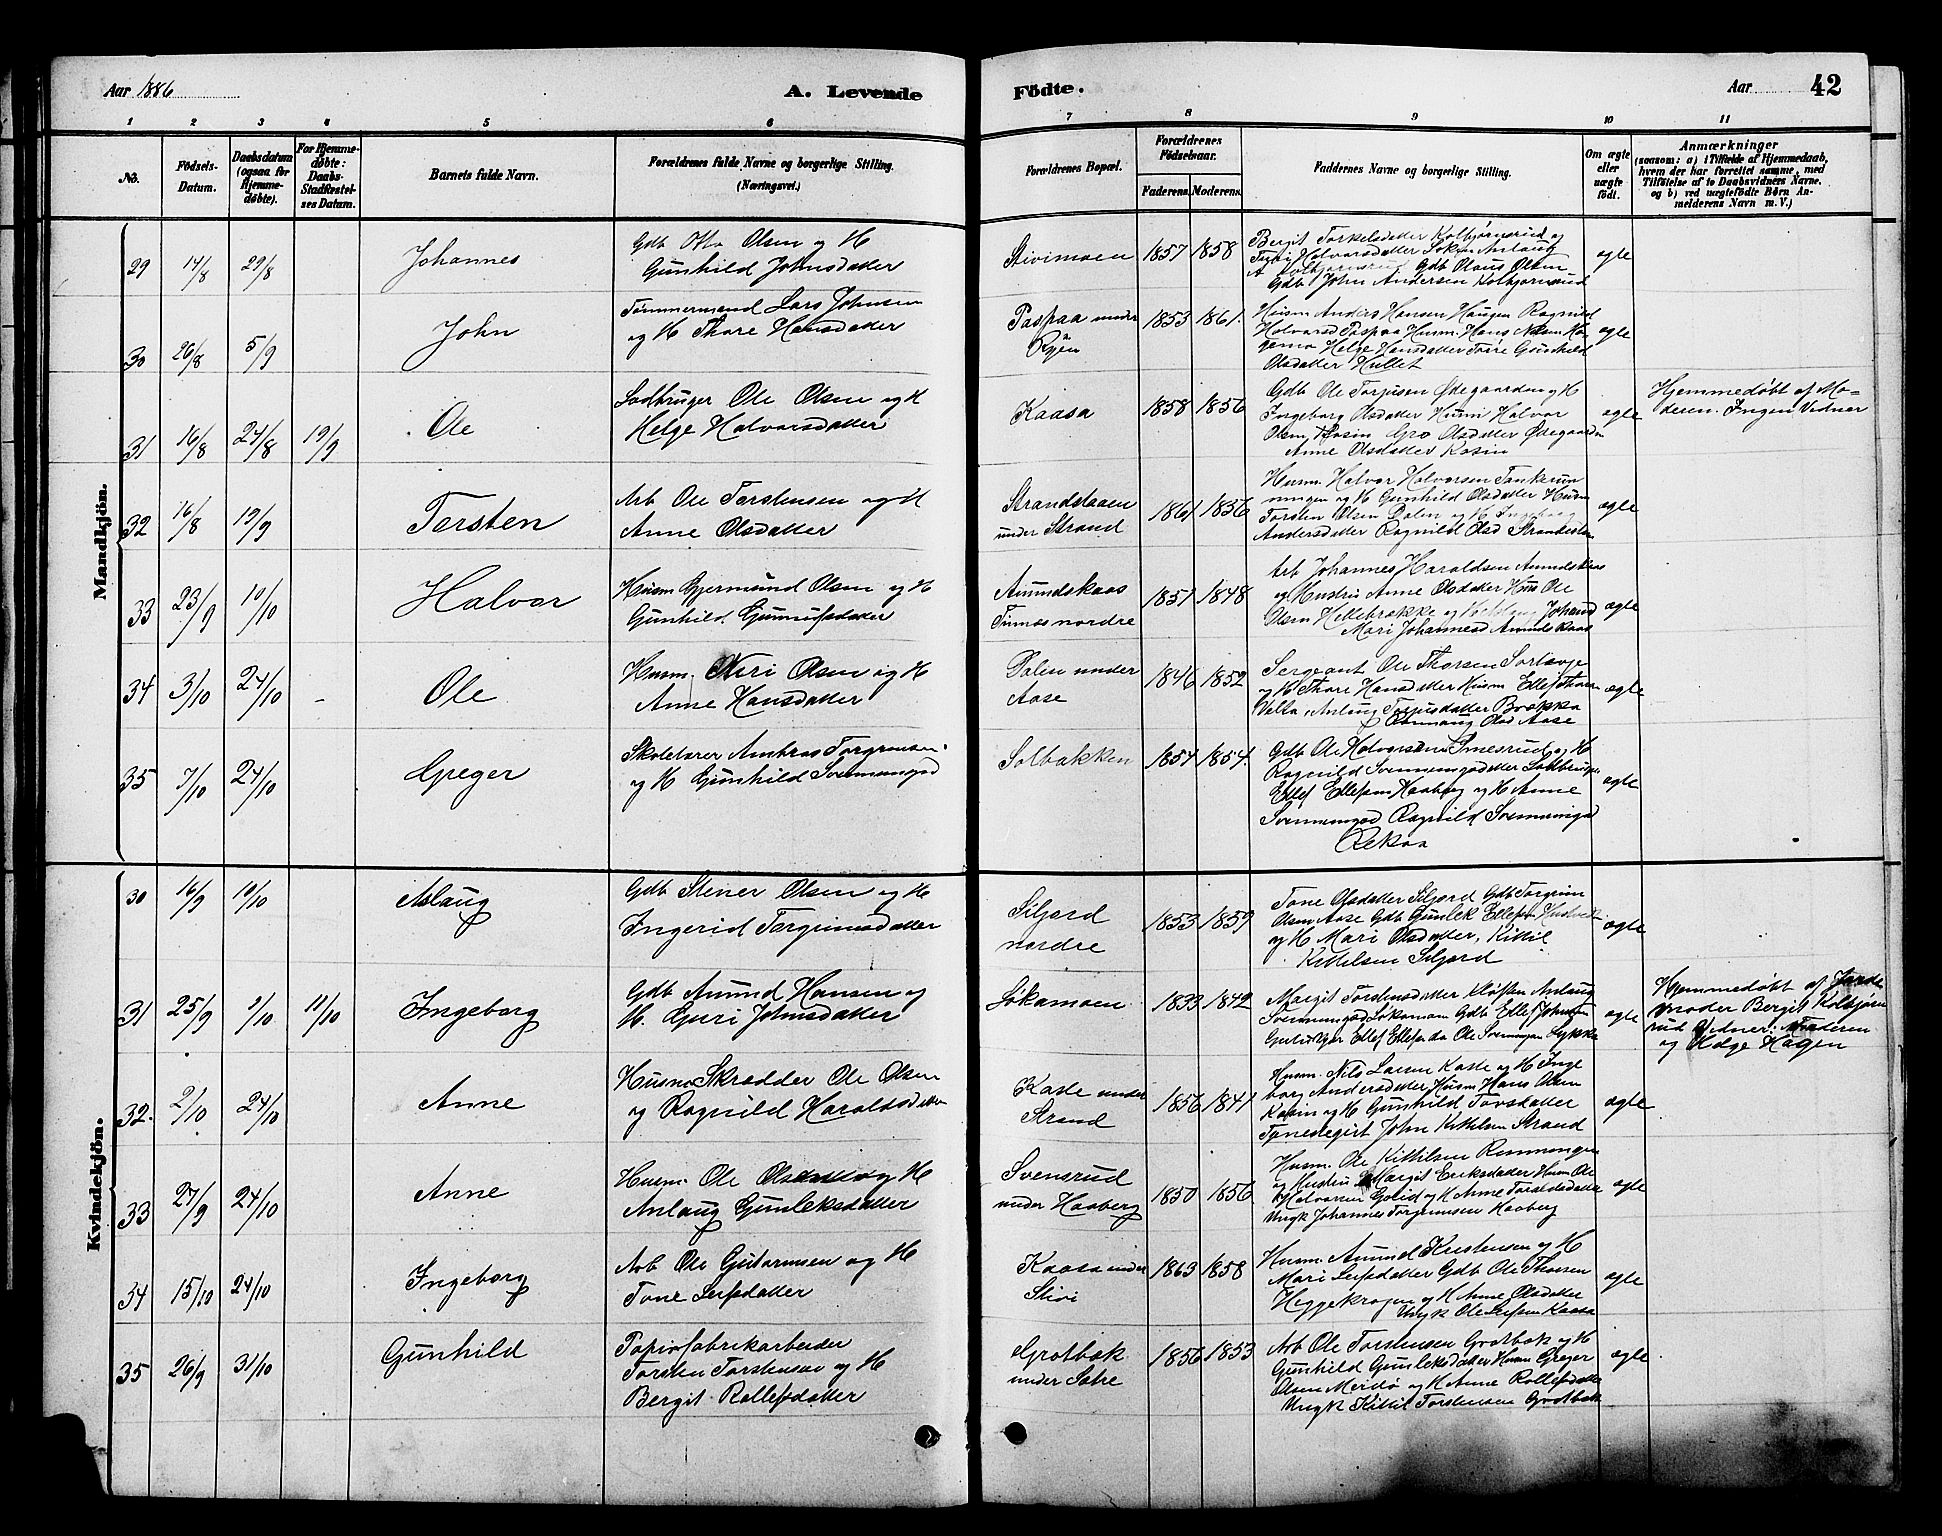 Aar 1886
A. Levende
Födte.
Aar
42
1 2 3 4 5 6 7 8 9 10 11
No.
Födsels-
Datum.
Daabsdatum
(ogsaa for
Hjemme-
döbte).
For Hjemme-
döbte:
Daabs-
Stadfæstel-
ses Datum.
Barnets fulde Navn.
Forældrenes fulde Navne og borgerlige Stilling.
(Næringsvei.)
Forældrenes Bopæl.
Forældrenes
Födselsaar.
Faderens. Moderens.
Faddernes Navne og borgerlige Stilling.
Om ægte
eller
uægte
födt.
Anmærkninger
(saasom: a) i Tilfælde af Hjemmedaab,
hvem der har forrettet samme, med
Tilföielse af to Daabsvidners Navne,
og b) ved uægtefödte Börn An-
melderens Navn m. V.)
Mandkjön.
29 14/8 29/8 Johannes
Gdb Otto Olsen og H
Gunhild Johnsdatter
Stivimoen
1857 1858
Bergit Torkelsdatter Kolbjørnsrud og
Halvorsdatter Aslaug
Gdb Olaus Olsen
Gdb John Andersen Kolbjørnsrud
ægte
30 26/8 5/9 John
Tømmermand Lars Johnsen
og H Thore Hansdatter
Paspaa under
Ryen
1853 1861.
Husm Anders Hansen Haugen Ragnild
Halvorsd Paspaa Husm. Hans
Helge Hansdatter Gunhild
Olsdatter Hullet
ægte
31 16/8 24/8 19/9 Ole
Lodbruger Ole Olsen og H
Helge Halvorsdatter
Kaasa
1858 1856
Gdb Ole Torjusen Ødegaarden og H
Ingeborg Olsdatter Husm Halvor
Olsen Kosin Gro Olsdatter Ødegaarden
Anne Olsdatter Kosin
ægte
Hjemmedøbt af Mo-
deren. Ingen Vidner
32 16/8 19/9 Torsten
Arb Ole Torstensen og H
Anne Olsdatter
Strandstaaen
under Strand
1861 1856
Husm Halvor Halvorsen
og H Gunhild Olsdatter Husm
Torsten Olsen Dalen og H Ingeborg
Andersdatter Ragnild Olsd
ægte
33 23/9 10/10 Halvor
Husm Gjermund Olsen og H
Gunhild Gunnufsdatter
Amundskaas
Tinnes nordre
1851 1848
Arb Johannes Haraldsen Amundskaas
og Hustru Anne Olsdatter Husm Ole
Olsen Hellebrække og Johansd
Mari Johannesd Amundskaas
ægte
34 3/10 24/10 - Ole
Husm. Neri Olsen og H
Anne Hansdatter
Dalen under
Aase
1846 1852
Sergeant Ole Thorsen Sortevje
og H Thore Hansdatter Husm Ellef Thorsen
Vella, Aslaug Torjusdatter Brekka
Rannaug Olsd Aase
ægte
35 7/10 24/10 Greger
Skolelærer Andreas Torgrimsen
og H Gunhild Svennungsd
Solbakken
1854 1854.
Gdb Ole Halvorsen Smesrud og H
Ragnild Svennungsdatter Lodbruger
Ellef Ellefsen Haaberg og H Anne
Svennungsd Ragnild Svennungsd
Reksaa
ægte
Kvindekjön.
30 16/9 10/10 Aslaug
Gdb Stener Olsen og H
Ingerid Torgrimsdatter
Siljord
nordre
1853 1859
Tone Olsdatter Siljord Gdb Torgrim
Olsen Aase Gdb Gunlek Ellefsen
og H Mari Olsdatter, Kittil
Kittilsen Siljord
ægte
31 25/9 1/10 11/10 Ingeborg
Gdb Amund Hansen og
H. Guri Johnsdatter
Løkamoen
1833 1842
Margit Torstensdatter Kløften Aslaug
Svennungsd Løkamoen Gdb Ellef Johnsen
Ellef Ellefsen Ole Svennungsen Lykka
ægte
Hjemmedøbt af Jorde-
moder Bergit Kolbjørns-
rud Vidner: Faderen
og Helge Haugen
32. 2/10 24/10 Anne
Husm Skrædder Ole Olsen
og Ragnild Haraldsdatter
Kaste under
Strand
1856 1841
Husm. Nils Larsen Kaste og H Inge
borg Andersdatter Husm Hans Olsen
Kosin og H Gunhild Tovsdatter
Tjenestegut John Kittilsen Strand
ægte
33 27/9 24/10 Anne
Husm. Ole og H
Aslaug Gunleksdatter
Svensrud
under Haaberg
1850 1856
Husm. Ole Kittilsen Rønningen
og Hustru Margit Eriksdatter Husm Ole
Halvorsen og H Anne Toraldsdatter
Ungk Johannes Torgrimsen Haaberg
ægte
34 15/10 24/10 Ingeborg
Arb Ole Guttormsen og H
Tone Leifsdatter
Kaasa under
Stivi
1863 1858
Husm. Amund Kristensen og H
Mari Leifsdatter Gdb Ole Thorsen
Heggekragen og H Anne Olsdatter
Ungk Ole Leifsen Kaasa
ægte
35 26/9 31/10 Gunhild
Papirfabrikarbeider
Torsten Torstensen og H
Bergit Rollefsdatter
Grotbæk
under Sætre
1856 1853
Arb Ole Torstensen Grotbæk og H
Gunhild Gunleksdatter Husm Greger
Olsen Meridø og H Anne Rollefsdatter
Ungk Kittil Torstensen Grotbæk
ægte